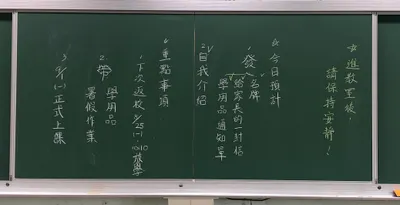 ☆進教室後，
請保持安靜！
☆今日預計
1.發
名牌
給家長的一封信
學用品通知單
2.自我介紹
☆重點事項
1.下次返校 8/25(一)
放學
2.帶
學用品
暑假作業
3. 9/1(一)正式上課